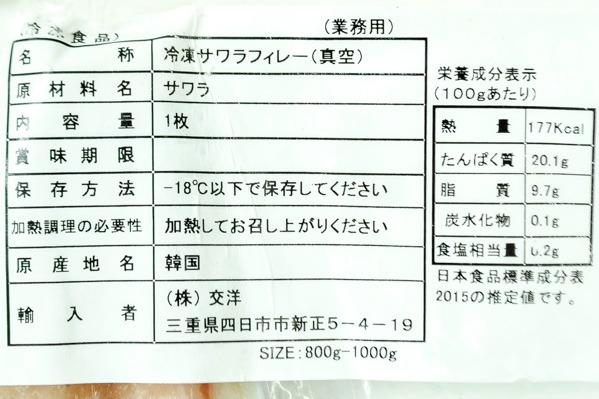 (業務用)
名称 冷凍サワラフィレー(真空)
原材料名 サワラ
内容量 1枚
賞味期限
保存方法 -18℃以下で保存してください
加熱調理の必要性 加熱してお召し上がりください
原産地名 韓国
輸入者 (株)交洋
三重県四日市市新正5-4-19
SIZE:800g-1000g
栄養成分表示
(100gあたり)
熱量 177Kcal
たんぱく質 20.1g
脂質 9.7g
炭水化物 0.1g
食塩相当量
日本食品標準成分表
2015の推定値です。